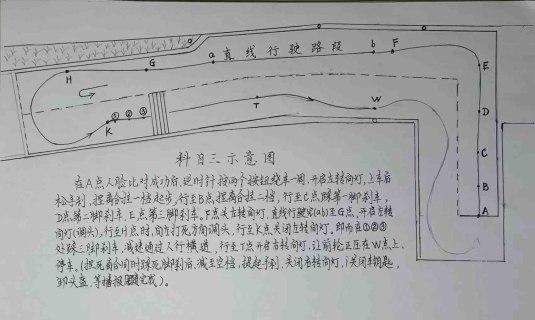 直线行驶路段
a
b
F
H
G
E
K
①
②
③
T
W
D
C
B
A
科目三示意图
在A点人脸比对成功后,逆时针按两个按钮绕车一周,开启左转向灯,上车后
松手刹,捏离合挂一档起步,行至B点捏离合挂二档,行至C点踩第一脚刹车,
D点第二脚刹车,E点第三脚刹车,F点关左转向灯,直线行驶完(ab)至G点,开启左转
向灯(调头),行至H点时,向左打死方向调头,行至K点关闭左转向灯。即而在①②③
处踩三脚刹车,减速通过人行横道,行至T点开启右转向灯,让前轮正压在W点上,
停车。(捏死离合同时踩死脚刹后,减至空档,提起手刹,关闭右转向灯,关闭车钥匙,
卸头盔,等播报完成)。